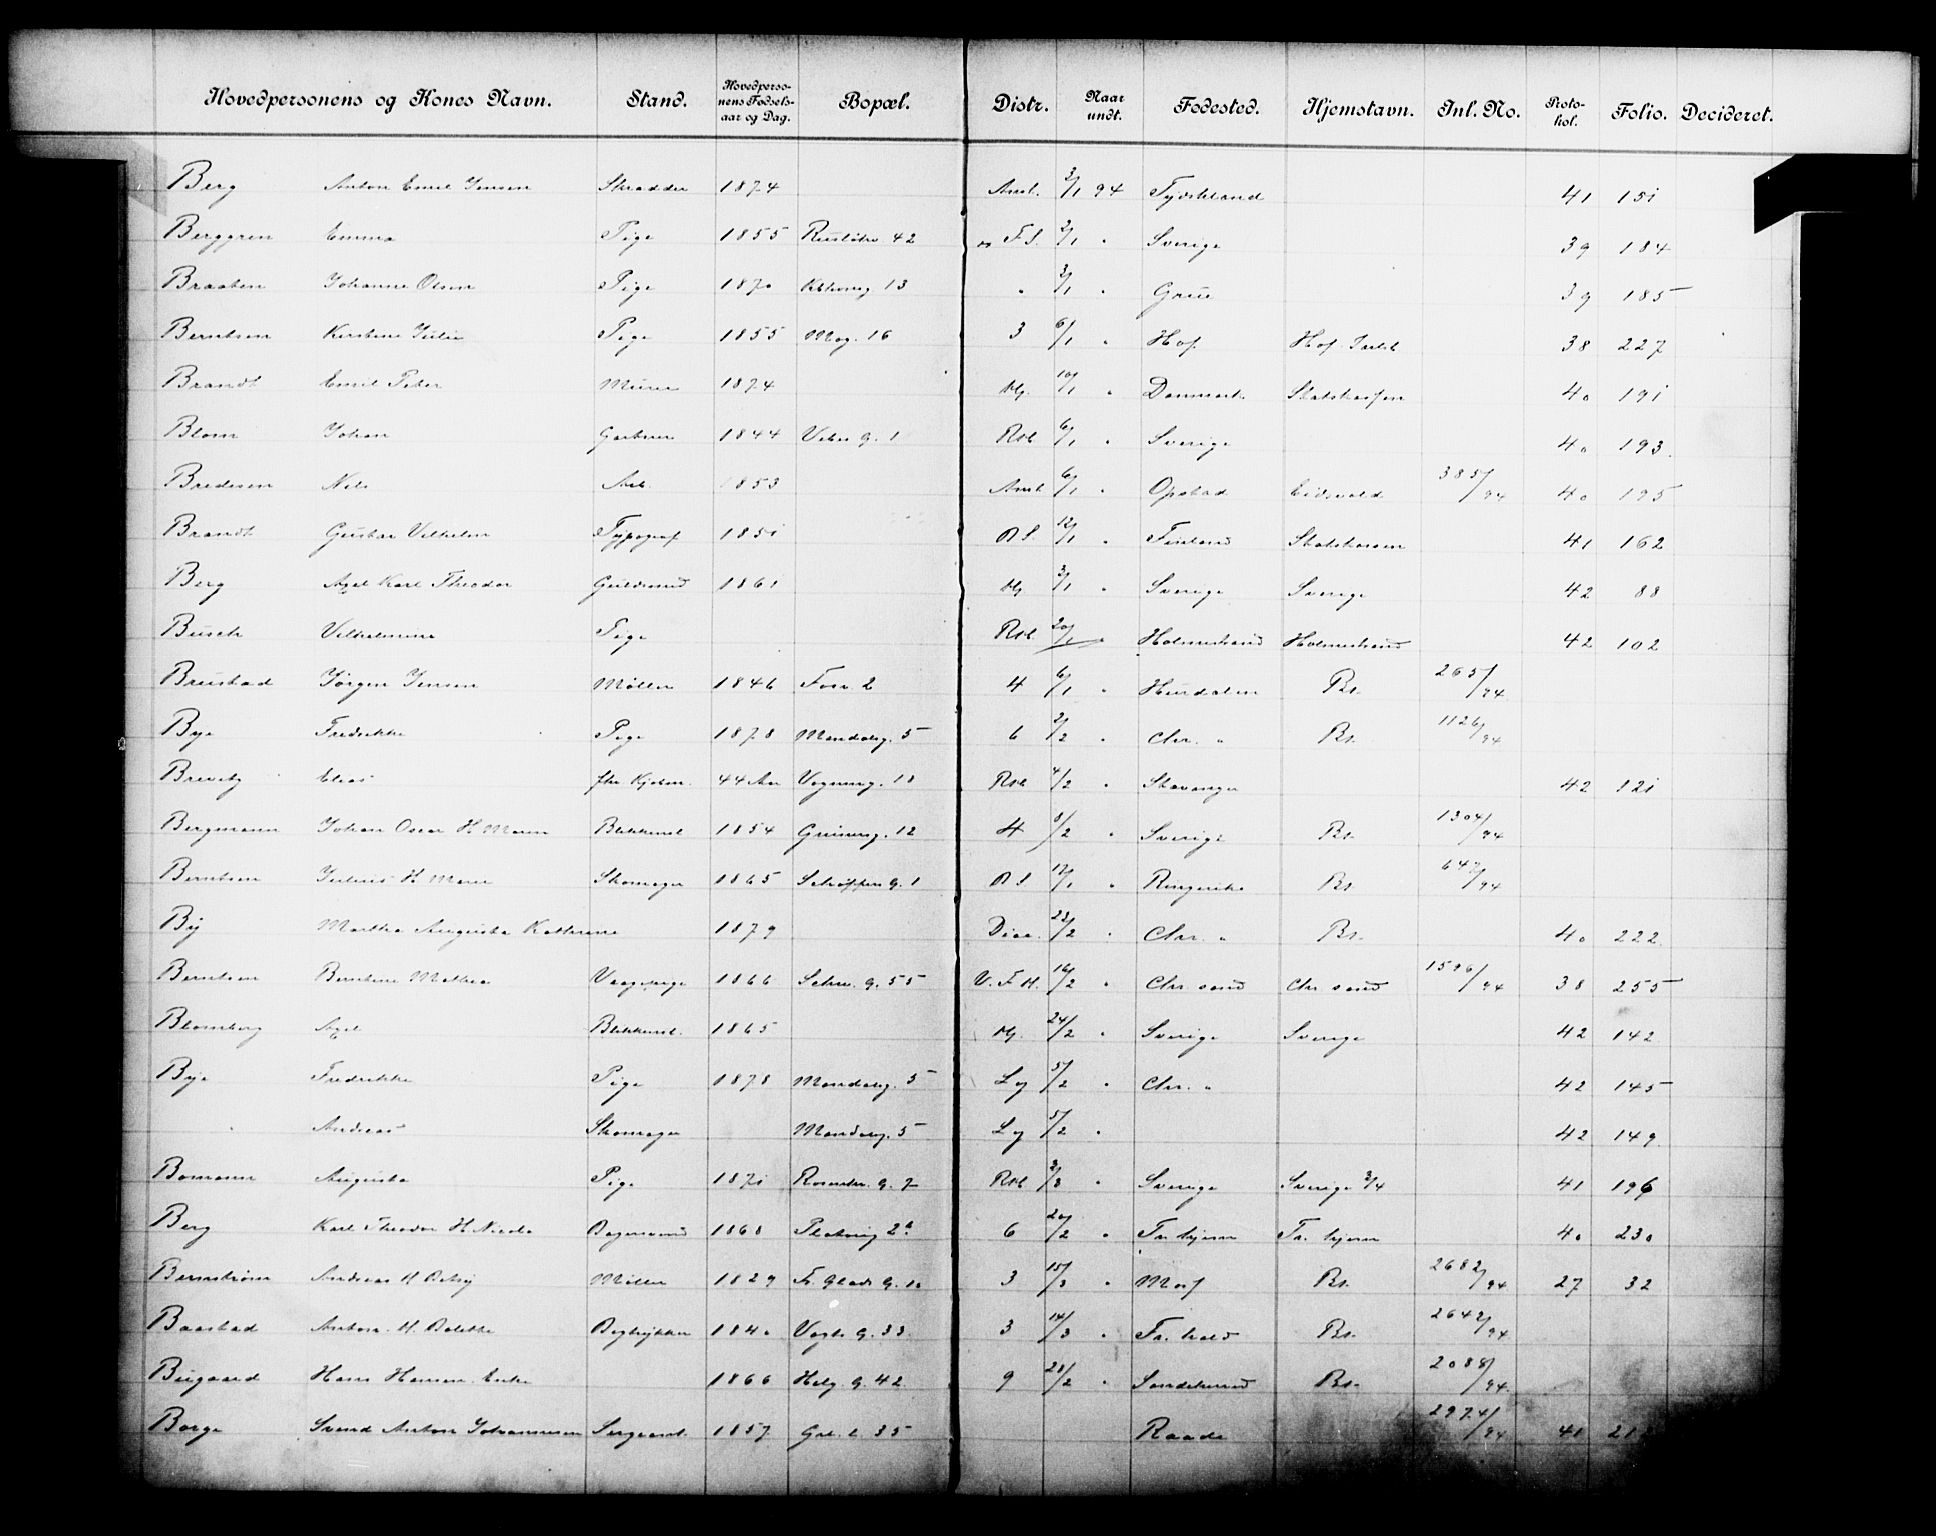 Hovedpersonens og Kones Navn. Stand. Hovedpersonens Fødselsaar og Dag. Bopæl. Distr. Naar undt. Fødested. Hjemstavn. Inl. No. Protokol. Folio. Decideret.
Berg Anton Emil Jensen Skrædder 1874 Amt. 3/1 94 Tydskland 41 151
Berggren Emma Pige 1855 42 F.S. 2/1 " Sverige 39 184
Braaten Johanne Olsen Pige 1870 13 " 3/1 " Grue 39 185
Berntsen Kirstine Julie Pige 1855 Mog. 16 3 6/1 " Hof Hof Jarlsb 38 227
Brandt Emil Peter Murer 1874 Mg. 10/1 " Danmark Statskassen 40 191
Blom Johan Gartner 1844 Vibes g. 1 Rst 6/1 " Sverige 40 193
Bredesen Nils Arb. 1853 Amt 6/1 " Opstad Eidsvold 385/94 40 195
Brandt Gustav Vilhelm Typograf 1851 B S. 12/1 " Finland Statskassen 41 162
Berg Axel Karl Theodor Guldsmed 1861 Mg 3/1 " Sverige Sverige 42 88
Busch Vilhelmine Pige Rst 20/1 " Holmestrand Holmestrand 42 102
Brustad Jørgen Jensen Møller 1846 Foss. 2 4 6/1 " Hurdalen Bs. 265/94
Bye Fredrikke Pige 1878 Mandalsg. 5 6 2/2 " Chr. " Bs. 1126/94
Elias 44 Aar Vognmg. 18 Rst 4/2 " Stavanger 42 121
Bergmann Johan Oscar H. Maren Blikkensl. 1854 Grünersg. 12 4 8/2 " Sverige Bs. 1304/94
Berntsen Julius H. Marie Skomager 1865 g. 1 B S. 17/1 " Ringerike Bs. 647/94
By Martha Augusta Kathrine 1879 Diac. 23/2 " Chr. " Bs. 40 222
Berntsen Berntine Mathea Vaagepige 1866 Schw. g. 55 V. F. H. 16/2 " Chr sand Chr sand 1596/94 38 255
Blomberg Axel Blikkensl. 1865 Mg. 24/2 " Sverige Sverige 42 142
Bye Fredrikke Pige 1878 Mandalsg. 5 Lg 5/2 " Chr. " 42 145
" Andreas Skomager Mandalsg. 5 Lg 5/2 " 42 149
Bomann Augusta Pige 1871 Rosenkr. g. 7 Rst 3/3 " Sverige Sverige 3/4 41 196
Berg Karl Theodor H. Bagersvend 1868 2a 6 20/2 " Tr. hjem Tr. hjem 40 230
Bernstrøm Andreas H. Betsy Møller 1829 Fr. Glads g. 10 3 15/3 " Moss Bs. 2682/94 27 32
Baastad Anton H. Bolette Bogtrykker 1840 Vogts g. 33 3 14/3 " Fr. hald Bs. 2642/94
Bugaard Hans Hansen Enke 1866 Helg. g. 42 9 28/2 " Bs. 2088/94
Borge Svend Anton Johannesen Sergeant 1857 35 Raade 2974/94 41